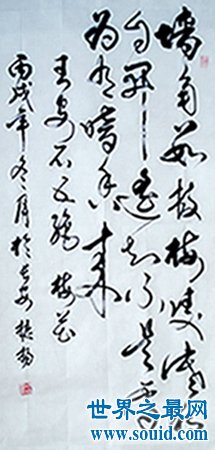 墙角数枝梅凌寒独
自开遥知不是雪
为有暗香来
王安石五绝 梅花
丙戌年冬月於长安
世界之最网
www.souid.com